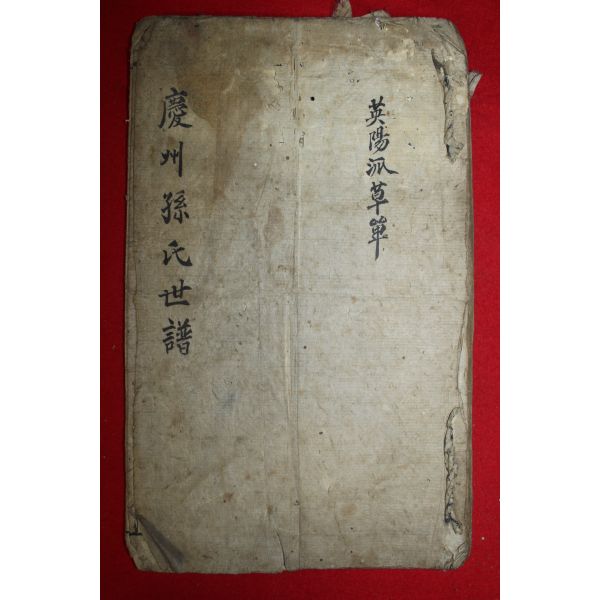 英陽派草單
慶州孫氏世譜